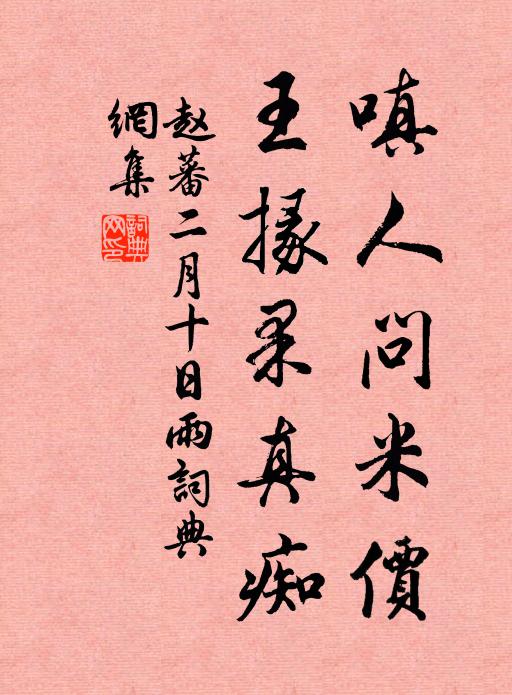 嗔人問米價
王掾果真痴
赵蕃二月十日雨詞典
網集
詞典网印